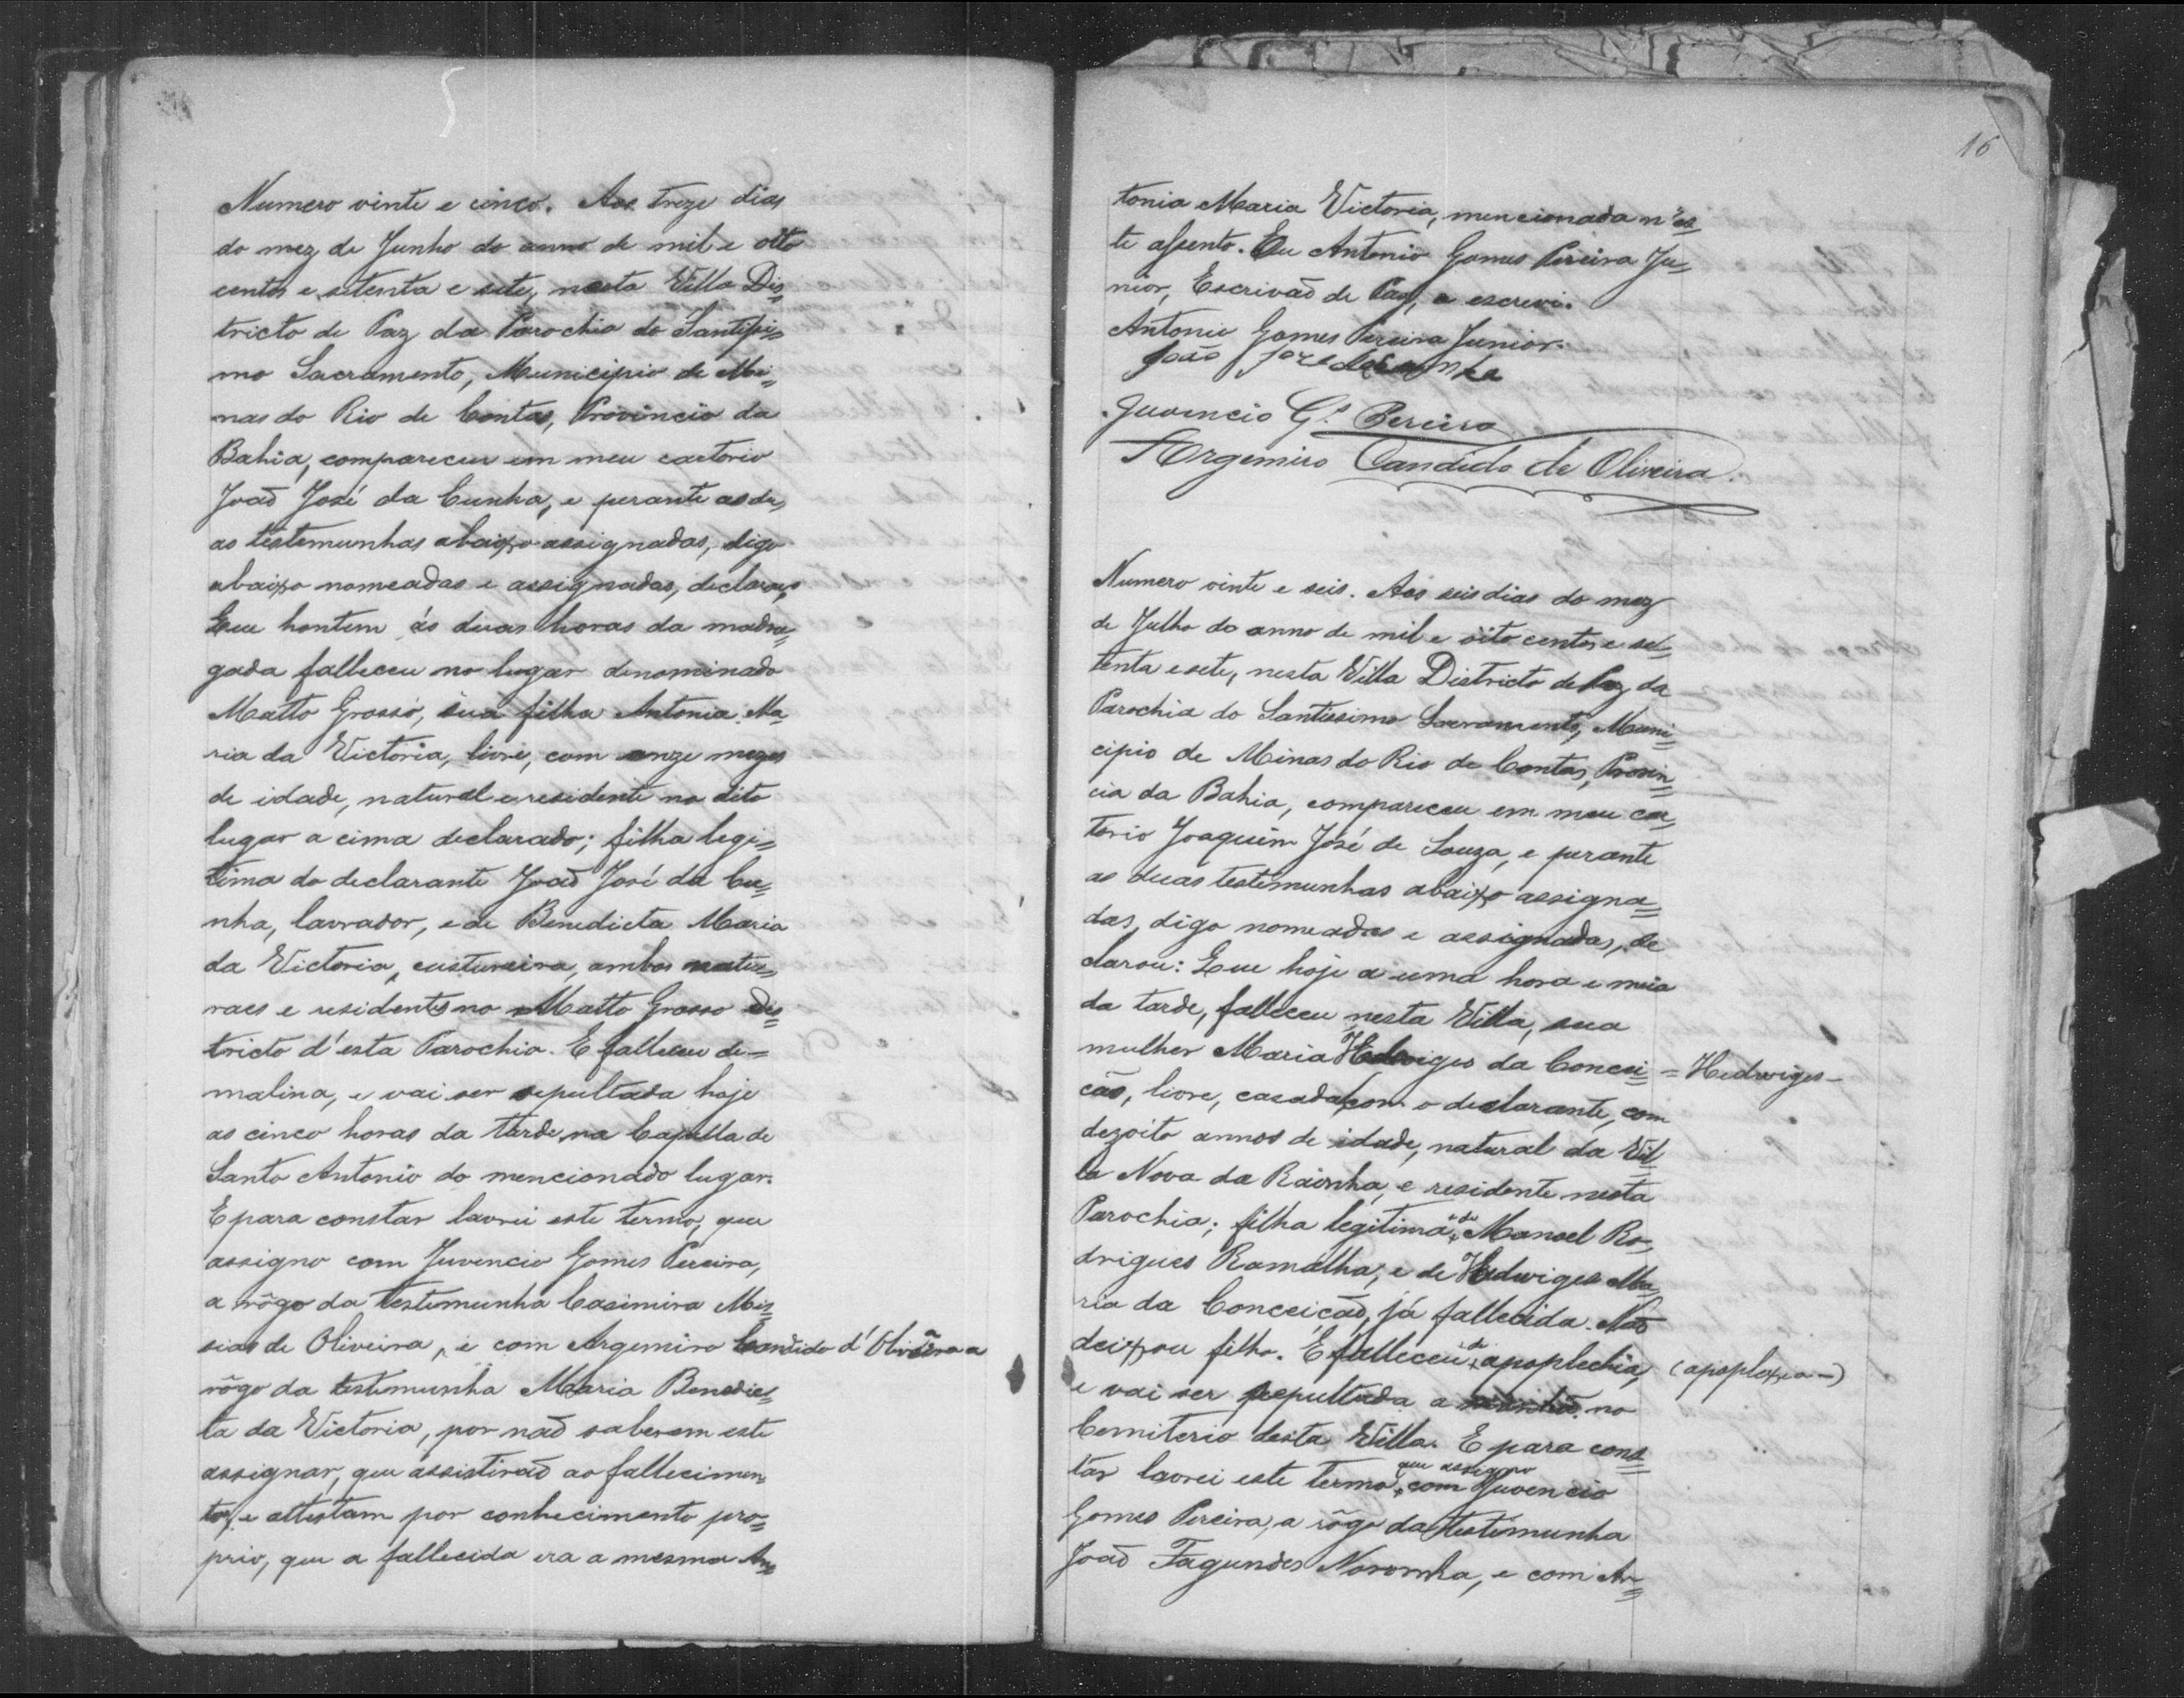 Numero vinte e cinco. Aos treze dias
do mez de Junho do anno de mil e oito
centos e setenta e sete, nesta Villa Dis=
tricto de Paz da Parochia do Santissi=
mo Sacramento, Municipio de Mi=
nas do Rio de Contas, Provincia da
Bahia, compareceu em meu cartorio
João José da Cunha, e perante as du=
as testemunhas abaixo assignadas, digo
abaixo nomeadas e assignadas, declarou,
Que hontem ás duas horas da madru=
gada falleceu no lugar denominado
Matto Grosso, sua filha Antonia Ma
ria da Victoria, livre, com onze mezes
de idade, natural e residente no dito
lugar a cima declarado; filha legi=
tima do declarante João José da Cu=
nha, lavrador, e de Benedicta Maria
da Victoria, custureira, ambos natu=
raes e residentes no Matto Grosso Dis=
tricto d'esta Parochia. E falleceu de=
malina, e vai ser sepultada hoje
as cinco horas da tarde, na Capella de
Santo Antonio do mencionado lugar.
E para constar lavrei este termo, que
assigno com Juvencio Gomes Pereira,
a rôgo da testemunha Casimira Mis=
sias de Oliveira, e com Argemiro Candido d'Oliveira a
rôgo da testemunha Maria Benedic=
ta da Victoria, por não saberem este
assignar, que assistirão ao fallecimen
to, e attestam por conhecimento pro=
prio, que a fallecida era a mesma An=
16
tonia Maria Victoria, mencionada n'es
te assento. Eu Antonio Gomes Pereira Ju=
nior, Escrivão de Paz, o escrevi.
Antonio Gomes Pereira Junior.
João Joze da Cunha
Juvencio G.s Pereira
Argemiro Candido de Oliveira.
Numero vinte e seis. Aos seis dias do mez
de Julho do anno de mil e oito centos e set=
tenta e sete, nesta Villa Districto de Paz da
Parochia do Santissimo Sacramento, Muni=
cipio de Minas do Rio de Contas, Provin=
cia da Bahia, compareceu em meu car=
torio Joaquim José de Souza, e perante
as duas testemunhas abaixo assigna=
das, digo nomeadas e assignadas, de
clarou: Que hoje a uma hora e meia
da tarde, falleceu nesta Villa, sua
mulher Maria Hedwiges da Concei= =Hedwiges=
cão, livre, casada com o declarante, com
dezoito annos de idade, natural da Vil
la Nova da Rainha, e residente nesta
Parochia; filha legitima de Manoel Ro=
drigues Ramalha, e de Hedwiges Ma=
ria da Conceição, já fallecida. Não
deixou filho. E falleceu de apoplechia, (apoplexia=)
e vai ser sepultada a no
Cemiterio desta Villa. E para cons=
tar lavrei este termo, que assigno com Juvencio
Gomes Pereira, a rôgo da testemunha
João Fagundes Noronha, e com Ar=